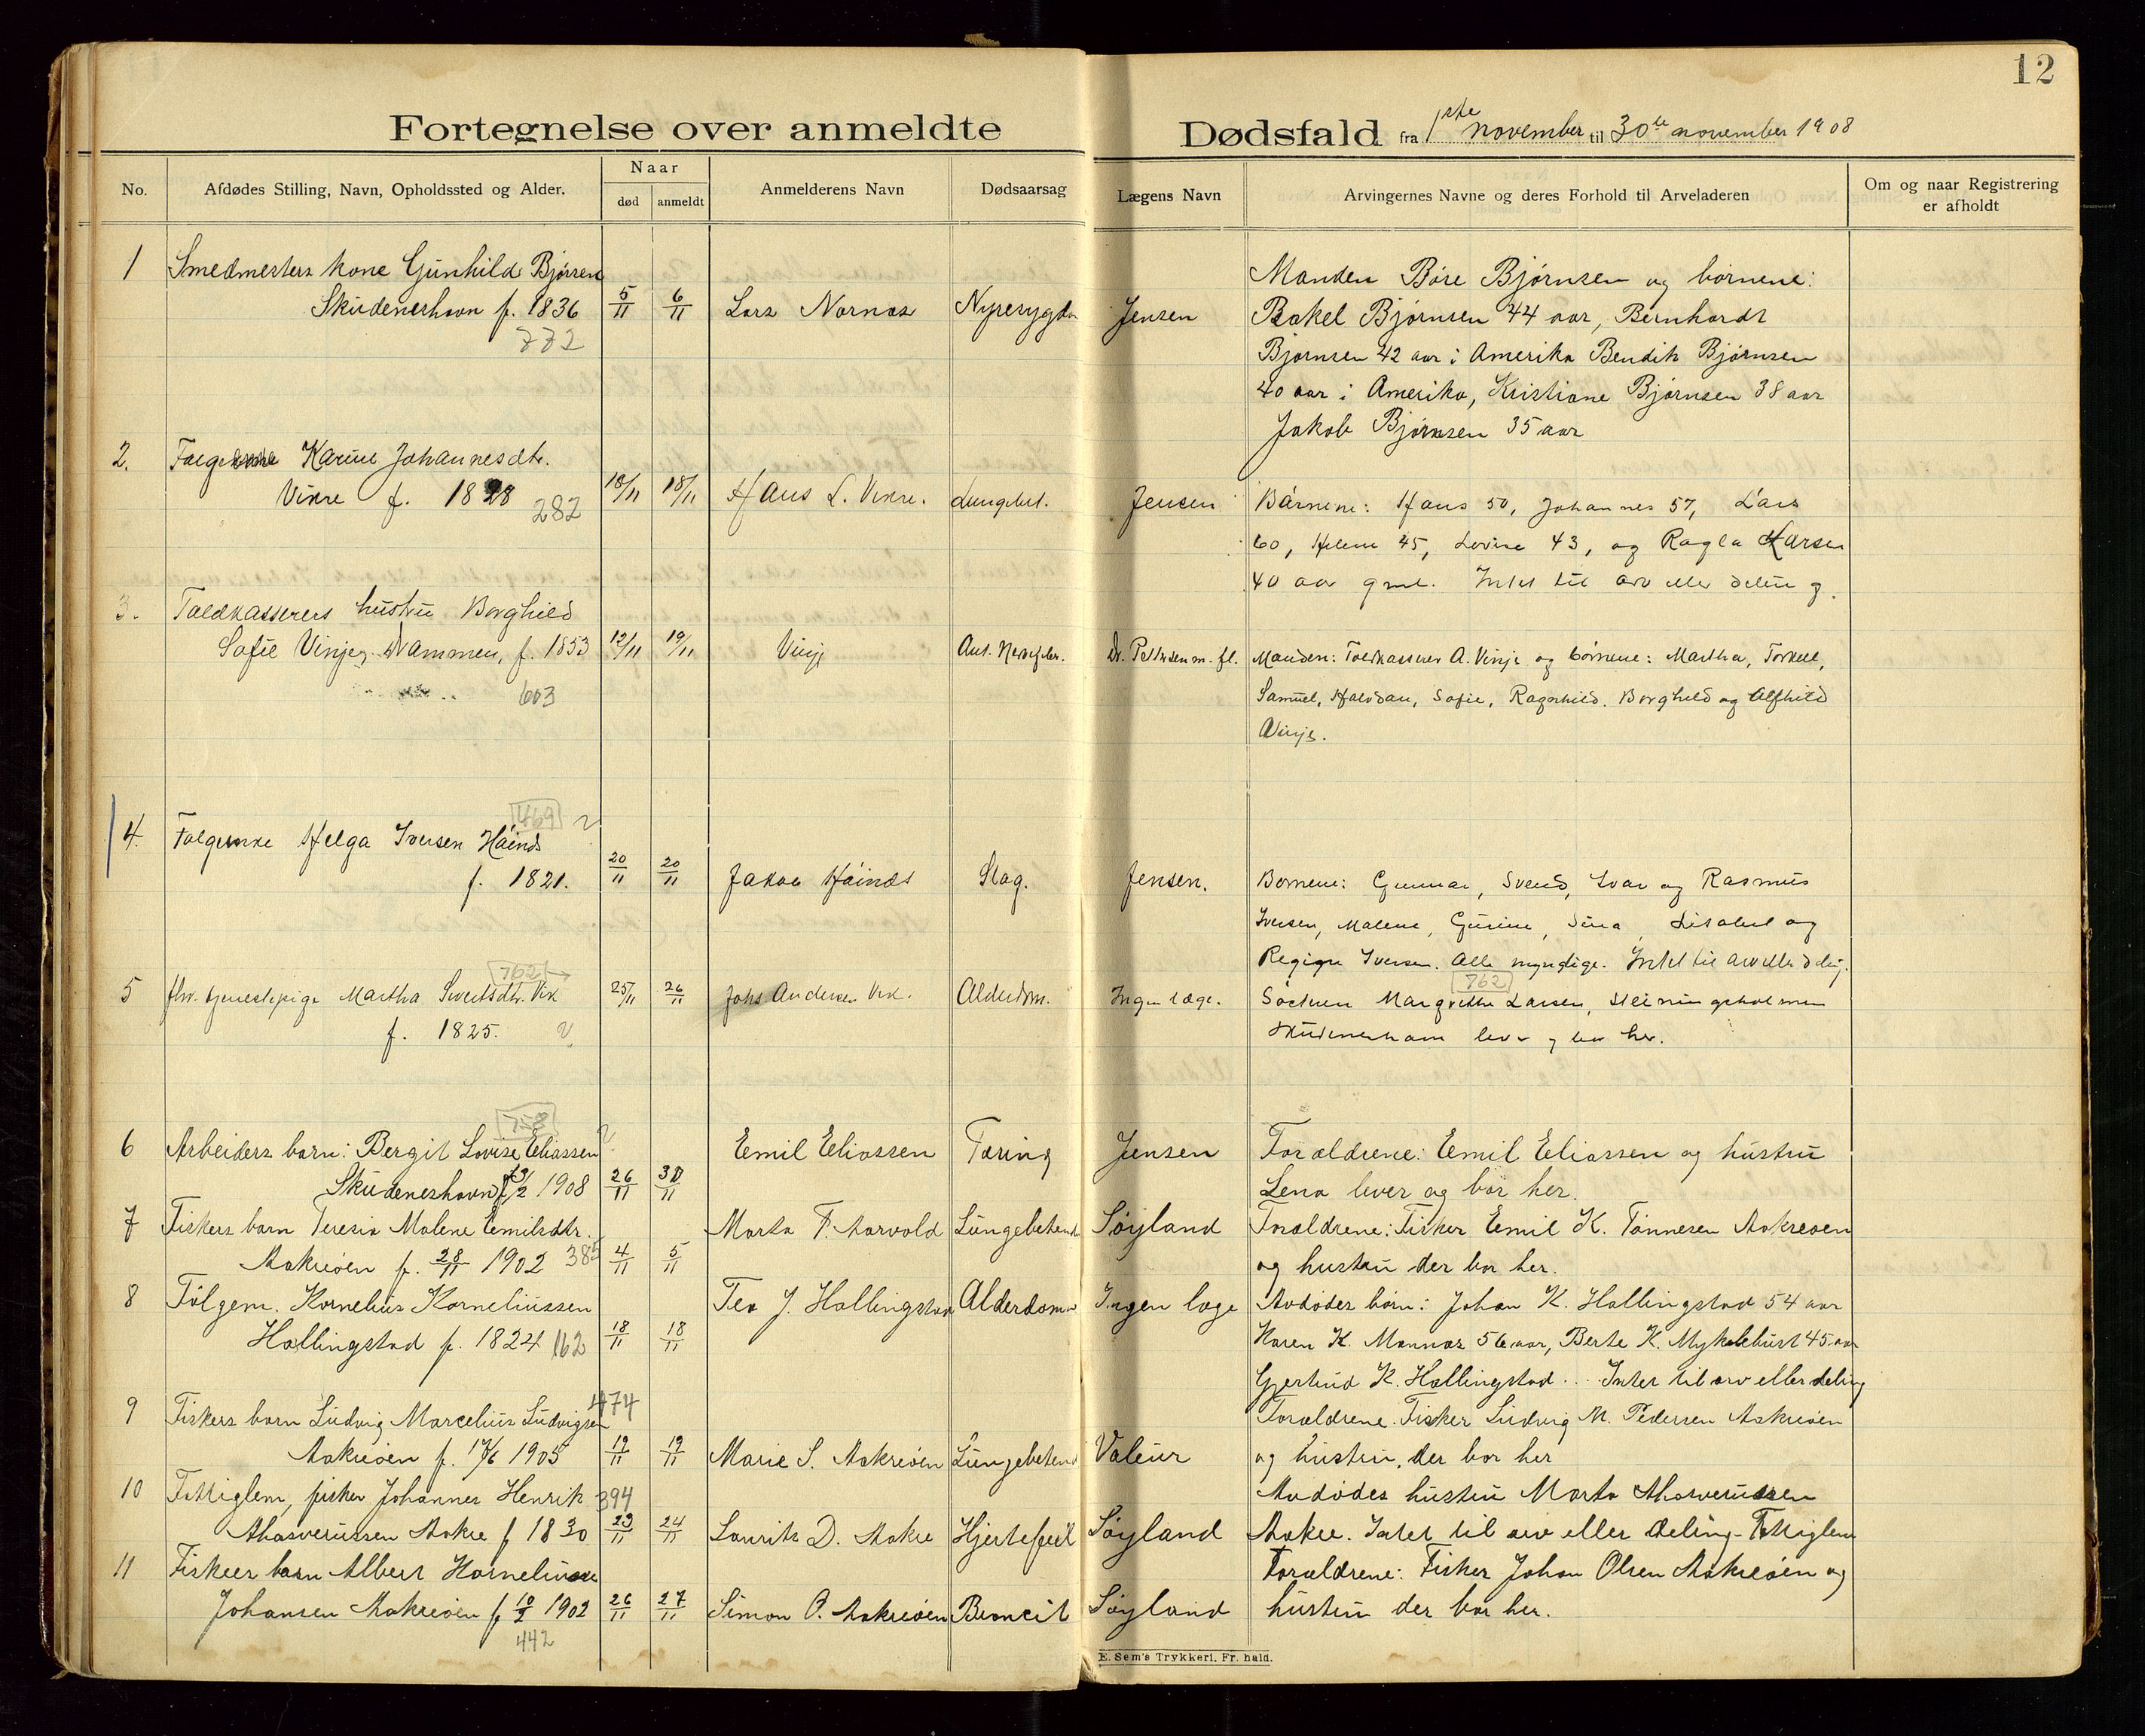 12
Fortegnelse over anmeldte Dødsfald fra 1ste november til 30te november 1908
No.
Afdødes Stilling, Navn, Opholdssted og Alder.
Naar
død
anmeldt
Anmelderens Navn
Dødsaarsag
Lægens Navn
Arvingernes Navne og deres Forhold til Arveladeren
Om og naar Registrering
er afholdt
1 Smedmesters kone Gunhild Bjørnsen
Skudeneshavn f. 1836 5/11 6/11 Lars Nornes Nyresygdom Jensen
772
Manden Børe Bjørnsen og børnene:
Rakel Bjørnsen 44 aar, Bernhardt
Bjørnsen 42 aar i Amerika Bendik Bjørnsen
40 aar i Amerika, Kristiane Bjørnsen 38 aar
Jakob Bjørnsen 35 aar
2. Karine Johannesdtr.
Vikre f. 1828 282 18/11 18/11 Hans L. Vikre. Lungebet. Jensen
Børnene: Hans 50, Johannes 57, Lars
60, Helene 45, Lovise 43, og Ragla Larsen
40 aar gml. Intet til arv eller deling.
3. Toldkasserers hustru Borghild
Sofie Vinje, f. 1853 12/11 19/11 Vinje Dr. Petersen m. fl.
603
Manden: Toldkasserer A. Vinje og børnene: Martha, Torkell,
Samuel, Halvdan, Sofie, Ragnhild, Borghild og Alfhild
Vinje.
4. 469 Folgekone Helga Iversen Høinds
f. 1821. 20/11 20/11 Jakob Høinds Slag. Jensen.
Børnene: Gunnar, Svend, Ivar og Rasmus
Iversen, Malene, Gurine, Sina, Lisabet og
Regine Iversen. Alle myndige. Intet til arv eller deling.
5 762 fhv. tjenestepige Martha Sivertsdtr. Vik
f. 1825. 25/11 26/11 Johs Andersen Vik. Alderdom. Ingen læge.
762
Søsteren Margrethe Larsen, Steiningsholmen
Skudeneshavn lever og bor her.
6 758 Arbeiders barn: Bergit Lovise Eliassen
Skudeneshavn f. 13/2 1908 26/11 30/11 Emil Eliassen Tæring Jensen
Forældrene: Emil Eliassen og hustru
Lena lever og bor her.
7 Fiskers barn Teresia Malene Emilsdtr.
Aakreøen f. 28/11 1902 385 4/11 5/11 Marta T. Aarvold Lungebetend Søyland
Forældrene: Fisker Emil K. Tønnesen Aakreøen
og hustru der bor her.
8 Følgem. Kornelius Korneliussen
Hallingstad f. 1824 162 18/11 18/11 Tea J. Hallingstad Alderdom Ingen læge
Avdødes børn: Johan K. Hallingstad 54 aar
Karen K. Mannes 56 aar, Berte K. Myklebust 45 aar
Gjertrud K. Hallingstad . . . Intet til arv eller deling
9 474 Fiskers barn Ludvig Marcelius Ludvigsen
Aakreøen f. 17/6 1905 19/11 19/11 Marie S. Aakreøen Lungebetend Valeur
Forældrene. Fisker Ludvig M. Pedersen Aakreøen
og hustru, der bor her
10 Fattiglem, fisker Johannes Henrik 394
Ahasverussen Aakre f 1830 23/11 24/11 Laurits D. Aakre Hjertefeil Søyland
Avdødes hustru Marta Ahasverussen
Aakre. Intet til arv eller deling - Fattiglem
11 Fiskers barn Albert Kornelius
Johansen Aakreøen f 10/2 1902 26/11 27/11 Simon O. Aakreøen Broncit Søyland
442
Forældrene: Fisker Johan Olsen Aakreøen og
hustru der bor her.
E. Sem's Trykkeri, Fr. hald.